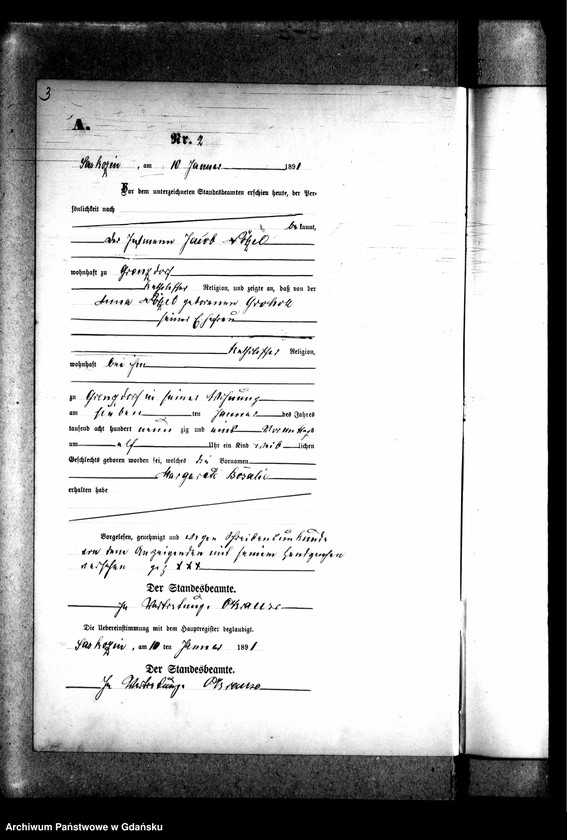 3
A.
Nr. 2
Saskozin, am 10 Januar 1891
Vor dem unterzeichneten Standesbeamten erschien heute, der Per-
sönlichkeit nach
bekannt,
der Jacob
wohnhaft zu Grenzdorf
katholischer Religion, und zeigte an, daß von der
Anna geborenen
seiner Ehefrau
katholischer Religion,
wohnhaft bei ihm
zu Grenzdorf in seiner Wohnung
am sieben ten Januar des Jahres
tausend acht hundert neunzig und eins Vormittags
um elf Uhr ein Kind weiblichen
Geschlechts geboren worden sei, welches die Vornamen
Margareth Rosalie
erhalten habe
Vorgelesen, genehmigt und wegen Schreibensunkunde
von dem Anzeigenden mit seinem Handzeichen
versehen gez xxx
Der Standesbeamte.
In Vertretung.
Die Uebereinstimmung mit dem Hauptregister beglaubigt.
Saskozin, am 10 ten Januar 1891
Der Standesbeamte.
In Vertretung.
Archiwum Państwowe w Gdańsku